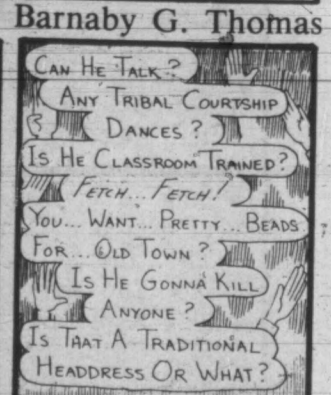 Barnaby G. Thomas
CAN HE TALK?
ANY TRIBAL COURTSHIP
DANCES?
IS HE CLASSROOM TRAINED?
FETCH... FETCH!
YOU... WANT... PRETTY... BEADS
FOR... OLD TOWN?
IS HE GONNA KILL
ANYONE?
IS THAT A TRADITIONAL
HEADDRESS OR WHAT?